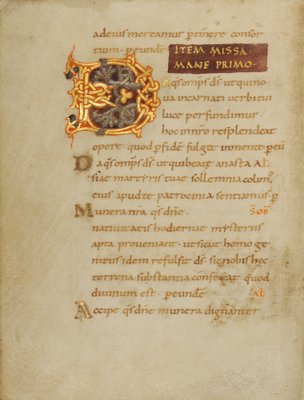 adeius mereamur pertinere consor
tium. p eunde
ITEM MISSA
MANE PRIMO.
DA qs omps ds ut qui no
ua incarnati uerbi tui
luce perfundimur
hoc in nro resplendeat
opere. quod p fidē fulget in mente. p eū
Da qs omps ds ut qui beatae anastasi
ae martiris tuae sollemnia colim;
eius apud te patrocinia sentiamus. p
Munera nra qs dn̄e. SOB
natiuitatis hodiernae mysteriis
apta proueniant. ut sicut homo ge
nitus idem refulsit ds. sic nobis haec
terrena substantia conferat quod
diuinum est. p eunde AL
Accipe qs dn̄e munera dignanter